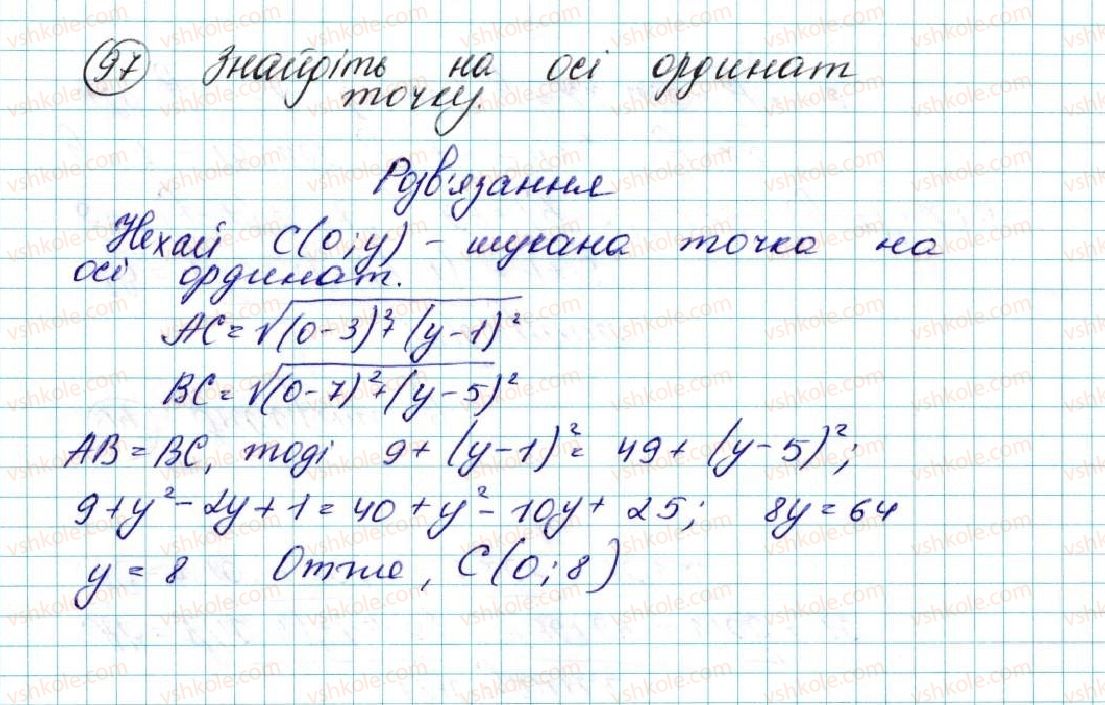 97 Знайдіть на осі ординат
точку.
Розв'язання
Нехай C(0;y) - шукана точка на
осі ординат.
AC = √(0-3)²+(y-1)²
BC = √(0-7)²+(y-5)²
AB = BC, тоді 9+(y-1)² = 49+(y-5)²;
9+y²-2y+1 = 40+y²-10y+25; 8y = 64
y = 8 Отже, C(0;8)